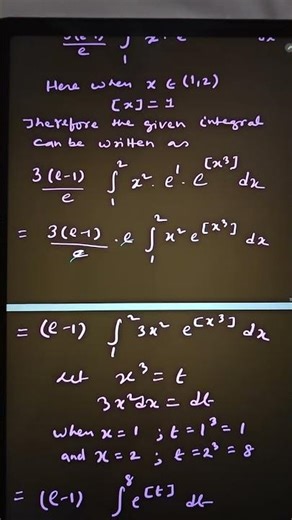 3(e-1)/e ∫₁ x² e dx
Here when x ∈ (1,2)
[x] = 1
Therefore the given integral
can be written as
3(e-1)/e ∫₁² x² · e¹ · e^[x³] dx
= 3(e-1)/e · e ∫₁² x² e^[x³] dx
= (e-1) ∫₁² 3x² e^[x³] dx
Let x³ = t
3x²dx = dt
when x = 1 ; t = 1³ = 1
and x = 2 ; t = 2³ = 8
= (e-1) ∫₁⁸ e^[t] dt